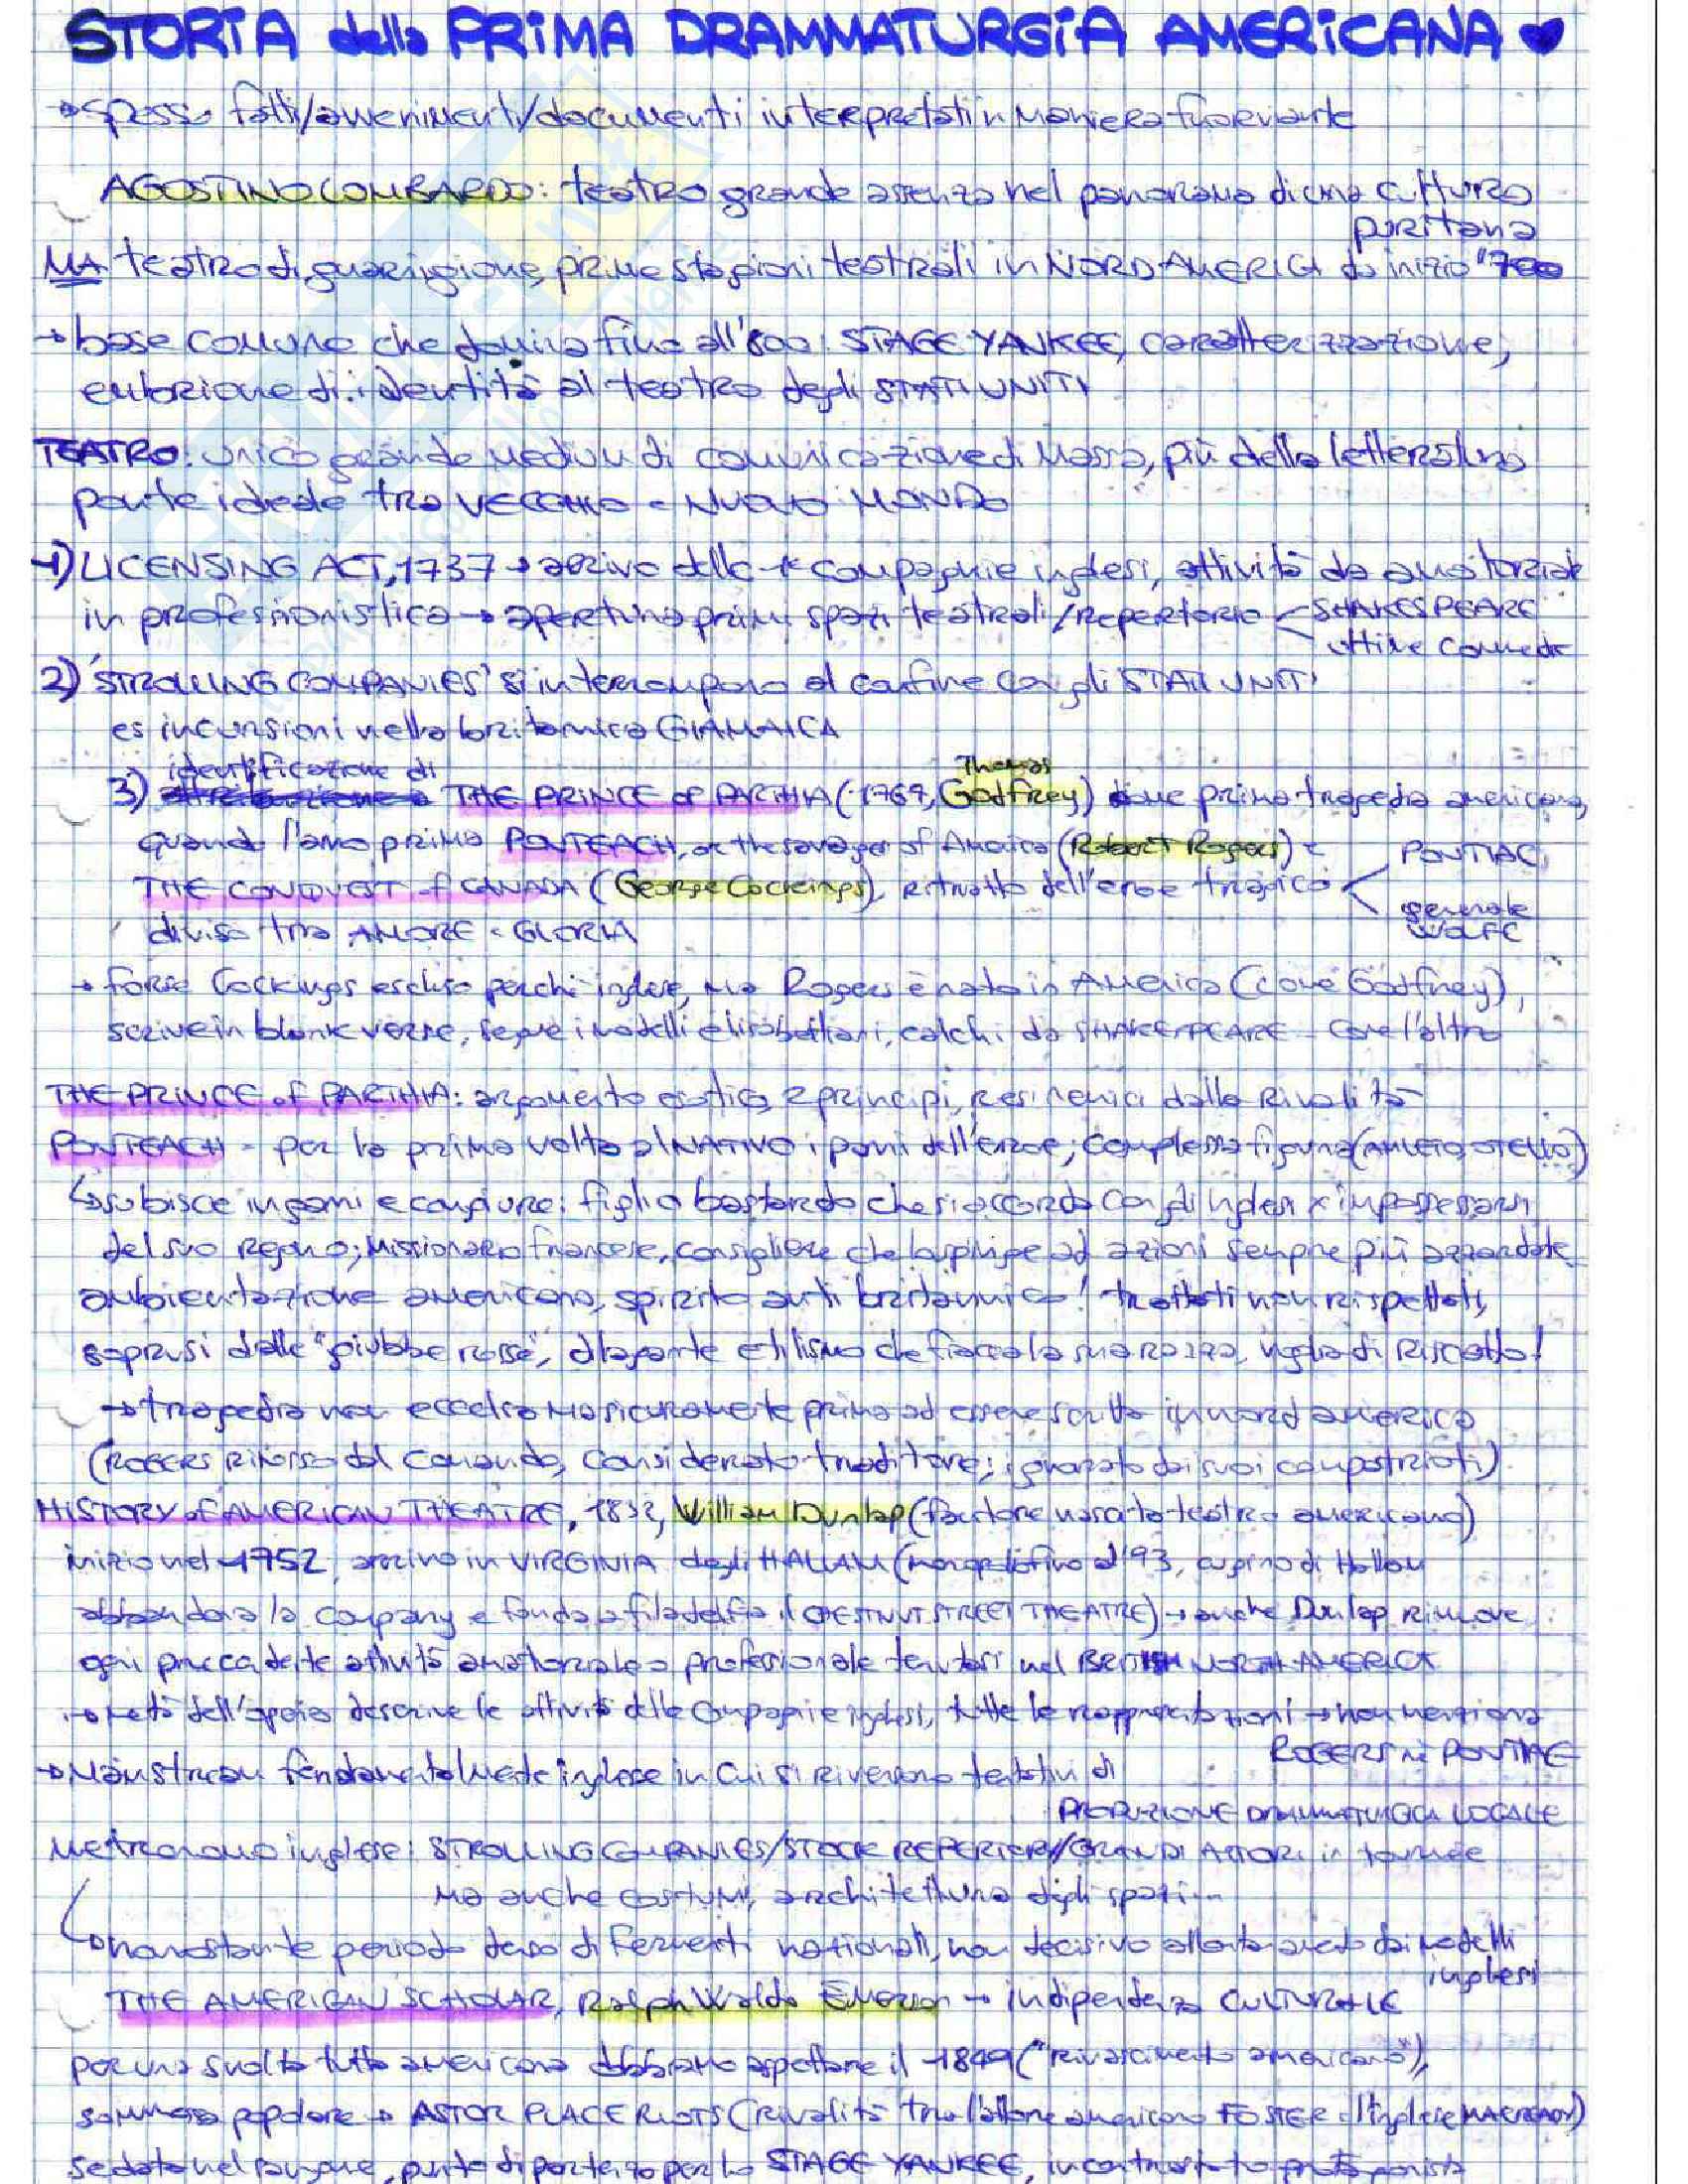 STORIA della PRIMA DRAMMATURGIA AMERICANA ♥
→ spesso fatti/avvenimenti/documenti interpretati in maniera fuorviante
AGOSTINO LOMBARDO: teatro grande assenza nel panorama di una cultura
puritana
MA teatro di guarnigione, prime stagioni teatrali in NORD AMERICA da inizio '700
→ base comune che domina fino all'800: STAGE YANKEE, caratterizzazione,
embrione di identità al teatro degli STATI UNITI
TEATRO: unico grande medium di comunicazione di massa, più della letteratura
ponte ideale tra VECCHIO e NUOVO MONDO
1) LICENSING ACT, 1737 → arrivo delle 1e compagnie inglesi, attività da amatoriale
in professionistica → apertura primi spazi teatrali/repertorio < SHAKESPEARE
ultime commedie
2) 'STROLLING COMPANIES' si interrompono al confine con gli STATI UNITI
es incursioni nella britannica GIAMAICA
identificazione di
3) THE PRINCE of PARTHIA (1767, Thomas Godfrey) come prima tragedia americana,
quando l'anno prima PONTEACH, or the savages of America (Robert Rogers) e
THE CONQUEST of CANADA (George Cockings), ritratto dell'eroe tragico < PONTIAC,
generale
WOLFE
diviso tra AMORE e GLORIA
→ forse Cockings escluso perché inglese, ma Rogers è nato in America (come Godfrey),
scrive in blank verse, segue i modelli elisabettiani, calchi da SHAKESPEARE - come l'altro
THE PRINCE of PARTHIA: argomento esotico, 2 principi, resi nemici dalla rivalità
PONTEACH - per la prima volta al NATIVO i panni dell'eroe; complessa figura (AMLETO, OTELLO)
↳ subisce inganni e congiure: figlio bastardo che si accorda con gli inglesi x impossessarsi
del suo regno; missionario francese, consigliere che lo spinge ad azioni sempre più azzardate
ambientazione americana, spirito anti britannico! trattati non rispettati,
soprusi delle "giubbe rosse", dilagante etilismo che fiacca la sua razza, voglia di riscatto!
→ tragedia non eccelsa ma sicuramente prima ad essere scritta in nord america
(ROGERS rimosso dal comando, considerato traditore; ignorato dai suoi compatrioti)
HISTORY of AMERICAN THEATRE, 1832, William Dunlap (fautore nascita teatro americano)
inizio nel 1752, arrivo in VIRGINIA degli HALLAM (monopolio fino al '93, cugino di Hallam
abbandona la company e fonda a filadelfia il CHESTNUT STREET THEATRE) → anche Dunlap rimuove
ogni precedente attività amatoriale o professionale tenutasi nel BRITISH NORTH AMERICA
→ metà dell'opera descrive le attività delle compagnie inglesi, tutte le rappresentazioni → non menziona
ROGERS né PONTIAC
→ Mainstream fondamentalmente inglese in cui si riversano tentativi di
PRODUZIONE DRAMMATURGICA LOCALE
Metronomo inglese: STROLLING COMPANIES/STOCK REPERTORY/GRANDI ATTORI in tournée
ma anche costumi, architettura degli spazi...
↳ nonostante periodo denso di fermenti nazionali, non decisivo allontanamento dai modelli
inglesi
THE AMERICAN SCHOLAR, Ralph Waldo Emerson → indipendenza CULTURALE
per una svolta tutta americana dobbiamo aspettare il 1849 ("rinascimento americano"),
sommossa popolare → ASTOR PLACE RIOTS (rivalità tra l'attore americano FOSTER e l'inglese MACREADY)
sedata nel sangue, punto di partenza per lo STAGE YANKEE, incontrastato protagonista